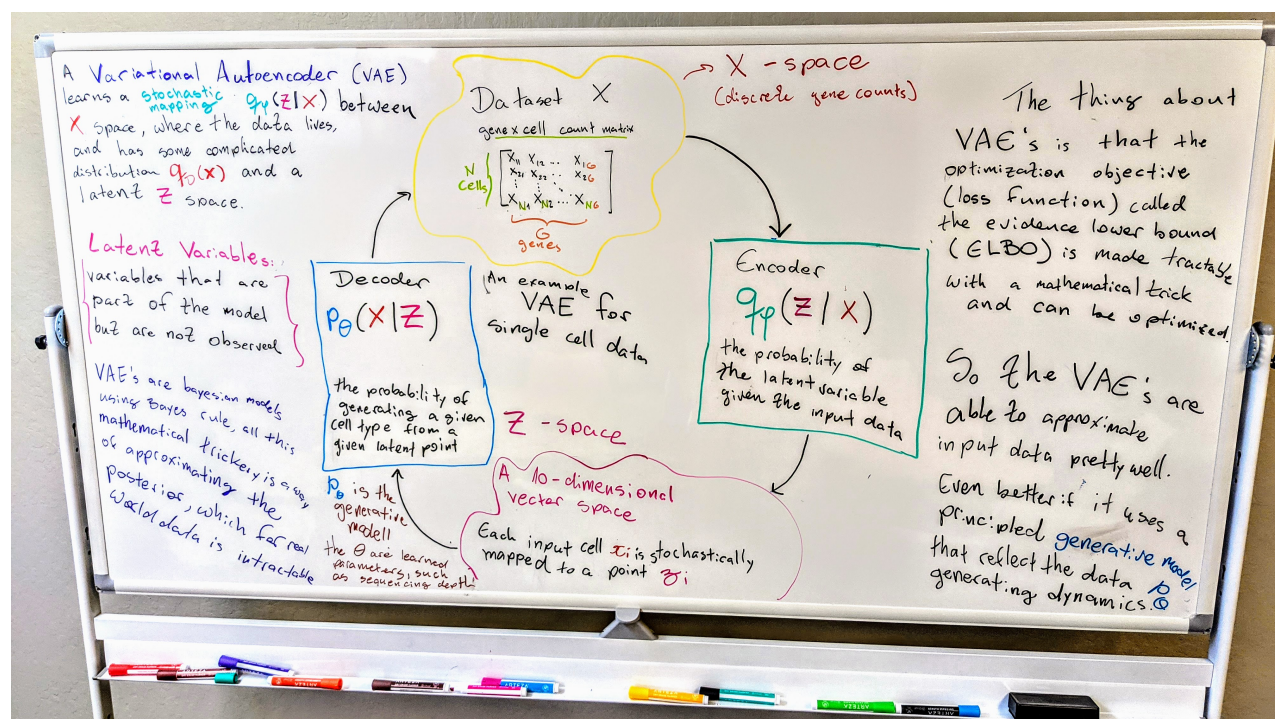 A Variational Autoencoder (VAE)
learns a stochastic
mapping qφ(Z|X) between
X space, where the data lives,
and has some complicated
distribution q_D(x) and a
latent Z space.
Latent Variables:
variables that are
part of the model
but are not observed
VAE's are bayesian models
using Bayes rule, all this
mathematical trickery is a way
of approximating the
posterior, which for real
world data is intractable
Dataset X
gene x cell count matrix
N
Cells
X11 X12 ... X1G
X21 X22 ... X2G
XN1 XN2 ... XNG
G
genes
X -space
(discrete gene counts)
Decoder
pθ(X|Z)
the probability of
generating a given
cell type from a
given latent point
An example
VAE for
single cell data
Encoder
qφ(Z|X)
the probability of
the latent variable
given the input data
Z -space
A 10-dimensional
vector space
Each input cell xi is stochastically
mapped to a point zi
pθ is the
generative
modell
the θ are learned
parameters, such
as sequencing depth
The thing about
VAE's is that the
optimization objective
(loss function) called
the evidence lower bound
(ELBO) is made tractable
with a mathematical trick
and can be optimized.
So the VAE's are
able to approximate
input data pretty well.
Even better if it uses a
principled generative model
that reflect the data pθ
generating dynamics.
ARTEZA
ARTEZA